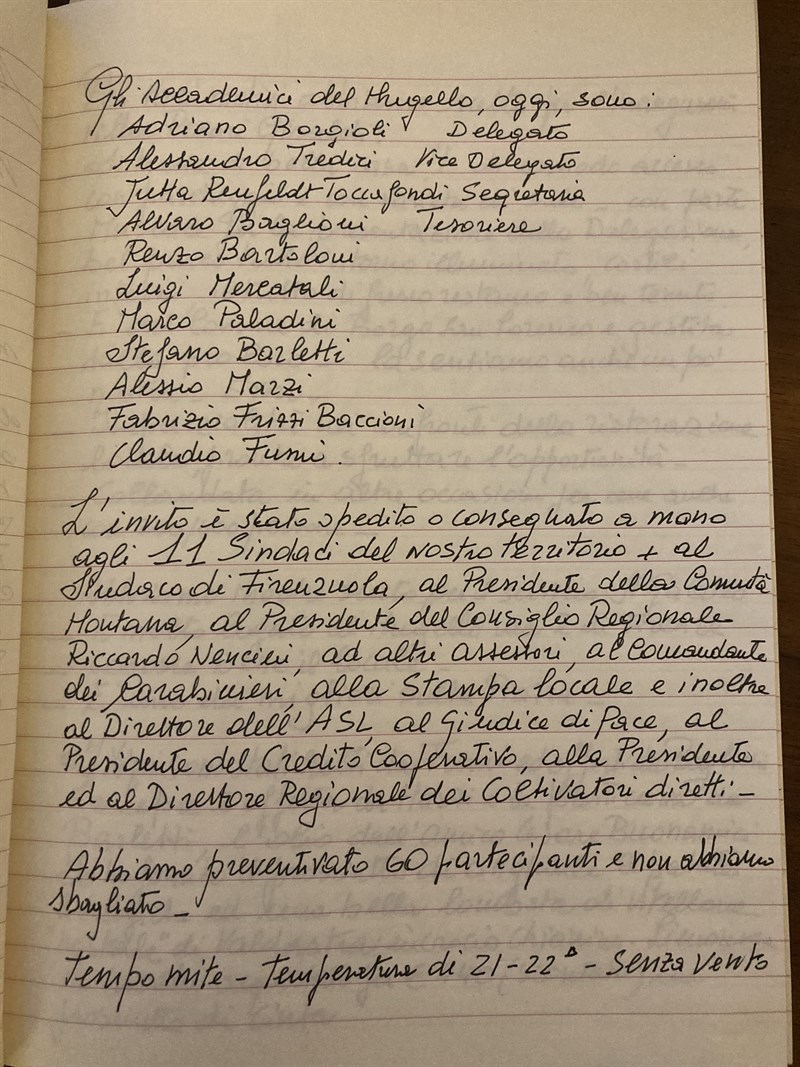 Gli Accademici del Mugello, oggi, sono:
Adriano Borgioli Delegato
Alessandro Tredici Vice Delegato
Jutta Renfeldt Toccafondi Segretaria
Alvaro Baglioni Tesoriere
Renzo Bartoloni
Luigi Mercatali
Marco Paladini
Stefano Barletti
Alessio Marzi
Fabrizio Frizzi Baccioni
Claudio Fumi.
L'invito è stato spedito o consegnato a mano
agli 11 Sindaci del nostro territorio + al
Sindaco di Firenzuola, al Presidente della Comunità
Montana, al Presidente del Consiglio Regionale
Riccardo Nencini, ad altri assessori, al Comandante
dei Carabinieri, alla Stampa locale e inoltre
al Direttore dell'ASL, al Giudice di Pace, al
Presidente del Credito Cooperativo, alla Presidente
ed al Direttore Regionale dei Coltivatori diretti. -
Abbiamo preventivato 60 partecipanti e non abbiamo
sbagliato -
Tempo mite - Temperatura di 21-22° - Senza vento